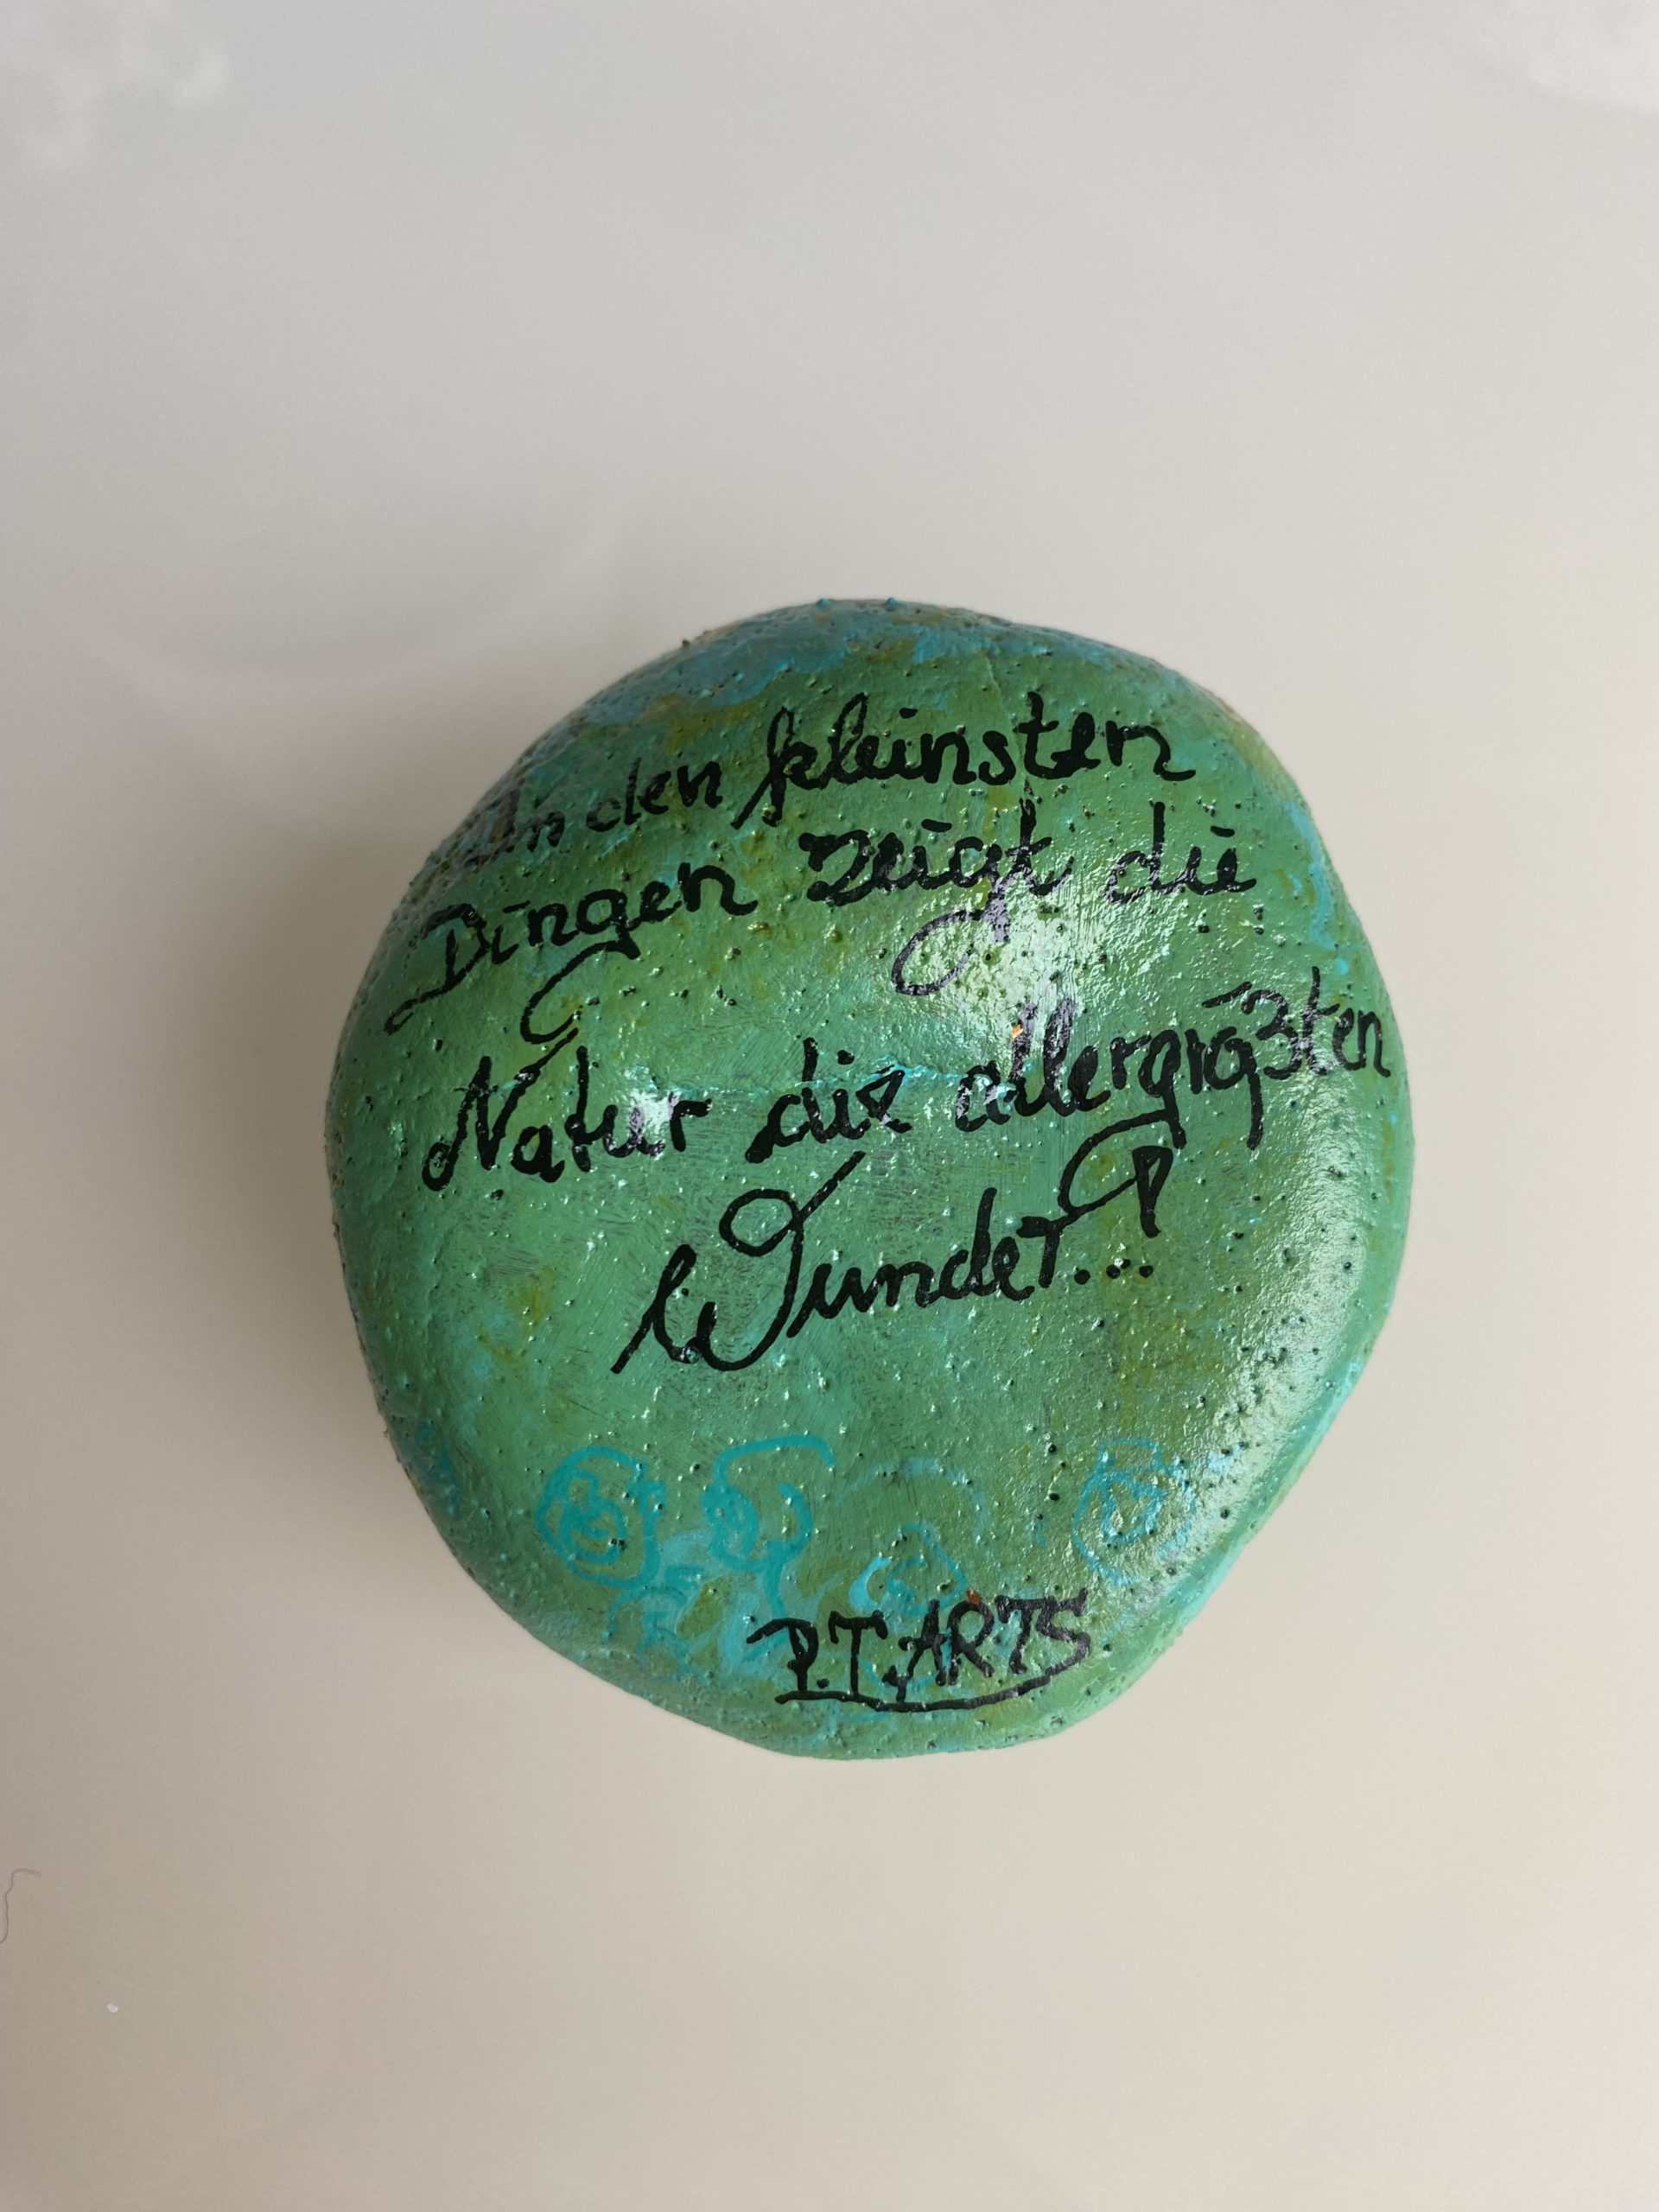 In den kleinsten
Dingen zeigt die
Natur die allergrößten
Wunder...!
P.T.ARTS